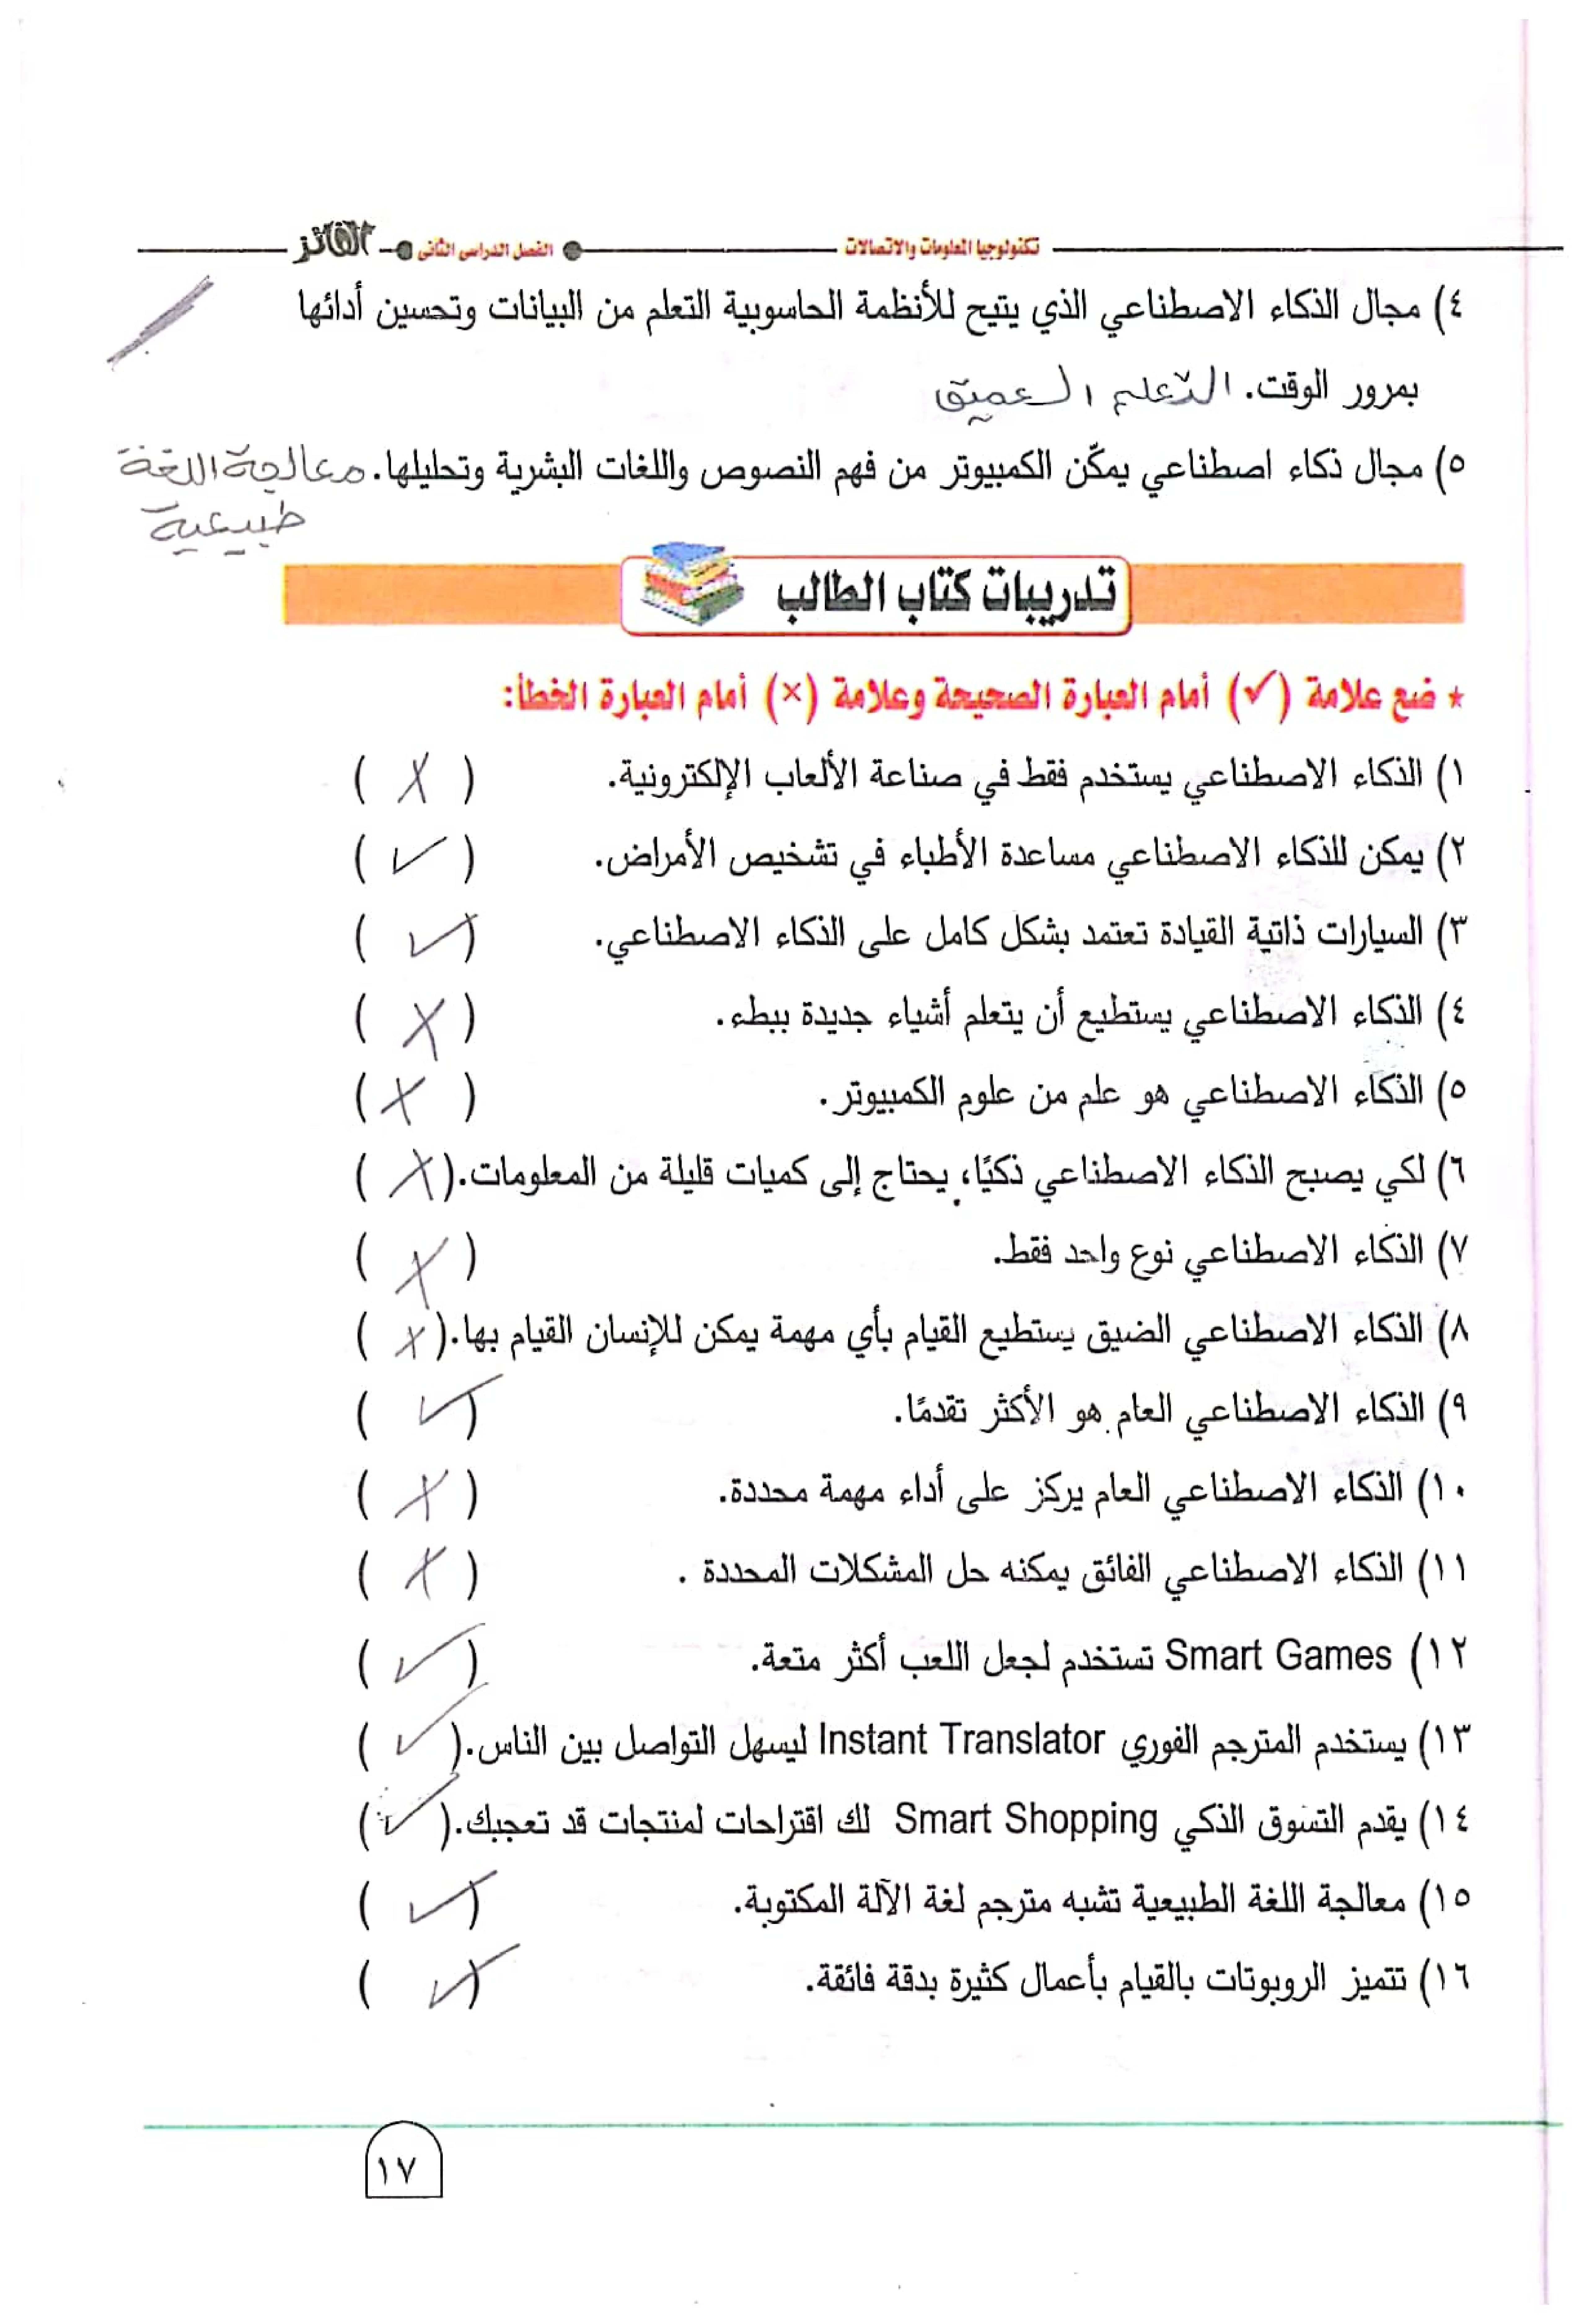 تكنولوجيا المعلومات والاتصالات الفصل الدراسى الثانى الفائز
٤) مجال الذكاء الاصطناعي الذي يتيح للأنظمة الحاسوبية التعلم من البيانات وتحسين أدائها
بمرور الوقت. التعلم العميق
٥) مجال ذكاء اصطناعي يمكّن الكمبيوتر من فهم النصوص واللغات البشرية وتحليلها. معالجة اللغة
طبيعية
تدريبات كتاب الطالب
* ضع علامة (✓) أمام العبارة الصحيحة وعلامة (×) أمام العبارة الخطأ:
١) الذكاء الاصطناعي يستخدم فقط في صناعة الألعاب الإلكترونية. ( X )
٢) يمكن للذكاء الاصطناعي مساعدة الأطباء في تشخيص الأمراض. ( ✓ )
٣) السيارات ذاتية القيادة تعتمد بشكل كامل على الذكاء الاصطناعي. ( ✓ )
٤) الذكاء الاصطناعي يستطيع أن يتعلم أشياء جديدة ببطء. ( X )
٥) الذكاء الاصطناعي هو علم من علوم الكمبيوتر. ( X )
٦) لكي يصبح الذكاء الاصطناعي ذكيًا، يحتاج إلى كميات قليلة من المعلومات. ( X )
٧) الذكاء الاصطناعي نوع واحد فقط. ( X )
٨) الذكاء الاصطناعي الضيق يستطيع القيام بأي مهمة يمكن للإنسان القيام بها. ( X )
٩) الذكاء الاصطناعي العام هو الأكثر تقدمًا. ( ✓ )
١٠) الذكاء الاصطناعي العام يركز على أداء مهمة محددة. ( X )
١١) الذكاء الاصطناعي الفائق يمكنه حل المشكلات المحددة . ( X )
١٢) Smart Games تستخدم لجعل اللعب أكثر متعة. ( ✓ )
١٣) يستخدم المترجم الفوري Instant Translator ليسهل التواصل بين الناس. ( ✓ )
١٤) يقدم التسوق الذكي Smart Shopping لك اقتراحات لمنتجات قد تعجبك. ( ✓ )
١٥) معالجة اللغة الطبيعية تشبه مترجم لغة الآلة المكتوبة. ( ✓ )
١٦) تتميز الروبوتات بالقيام بأعمال كثيرة بدقة فائقة. ( ✓ )
١٧